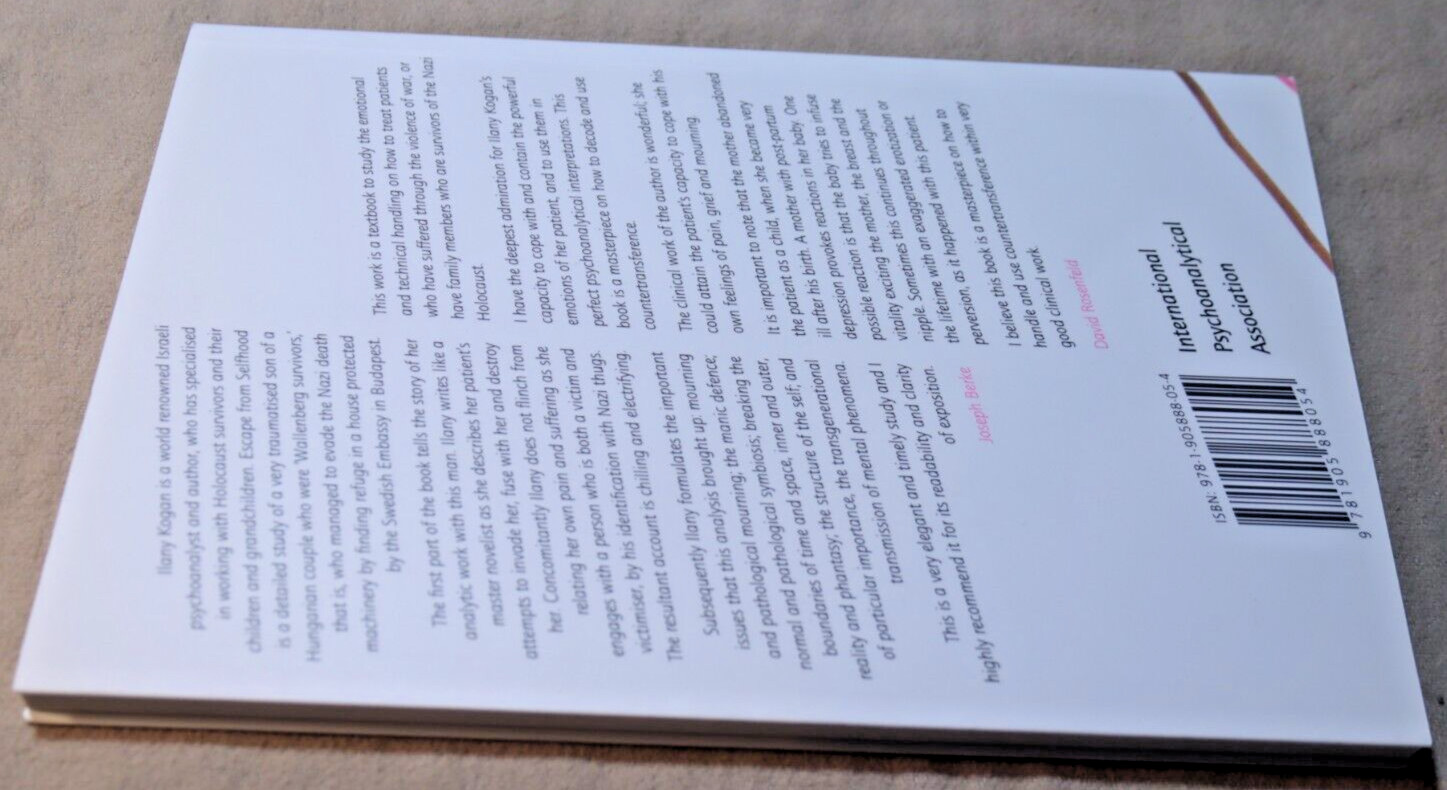 Ilany Kogan is a world renowned Israeli
psychoanalyst and author, who has specialised
in working with Holocaust survivors and their
children and grandchildren. Escape from Selfhood
is a detailed study of a very traumatised son of a
Hungarian couple who were 'Wallenberg survivors,'
that is, who managed to evade the Nazi death
machinery by finding refuge in a house protected
by the Swedish Embassy in Budapest.
The first part of the book tells the story of her
analytic work with this man. Ilany writes like a
master novelist as she describes her patient's
attempts to invade her, fuse with her and destroy
her. Concomitantly Ilany does not flinch from
relating her own pain and suffering as she
engages with a person who is both a victim and
victimiser, by his identification with Nazi thugs.
The resultant account is chilling and electrifying.
Subsequently Ilany formulates the important
issues that this analysis brought up: mourning
and pathological mourning; the manic defence;
normal and pathological symbiosis; breaking the
boundaries of time and space, inner and outer,
reality and phantasy; the structure of the self, and
of particular importance, the transgenerational
transmission of mental phenomena.
This is a very elegant and timely study and I
highly recommend it for its readability and clarity
of exposition.
Joseph Berke
This work is a textbook to study the emotional
and technical handling on how to treat patients
who have suffered through the violence of war, or
have family members who are survivors of the Nazi
Holocaust.
I have the deepest admiration for Ilany Kogan's
capacity to cope with and contain the powerful
emotions of her patient, and to use them in
perfect psychoanalytical interpretations. This
book is a masterpiece on how to decode and use
countertransference.
The clinical work of the author is wonderful: she
could attain the patient's capacity to cope with his
own feelings of pain, grief and mourning.
It is important to note that the mother abandoned
the patient as a child, when she became very
ill after his birth. A mother with post-partum
depression provokes reactions in her baby. One
possible reaction is that the baby tries to infuse
vitality exciting the mother, the breast and the
nipple. Sometimes this continues throughout
the lifetime with an exaggerated erotization or
perversion, as it happened with this patient.
I believe this book is a masterpiece on how to
handle and use countertransference within very
good clinical work.
David Rosenfeld
ISBN: 978-1-905888-05-4
9 781905 888054
International
Psychoanalytical
Association